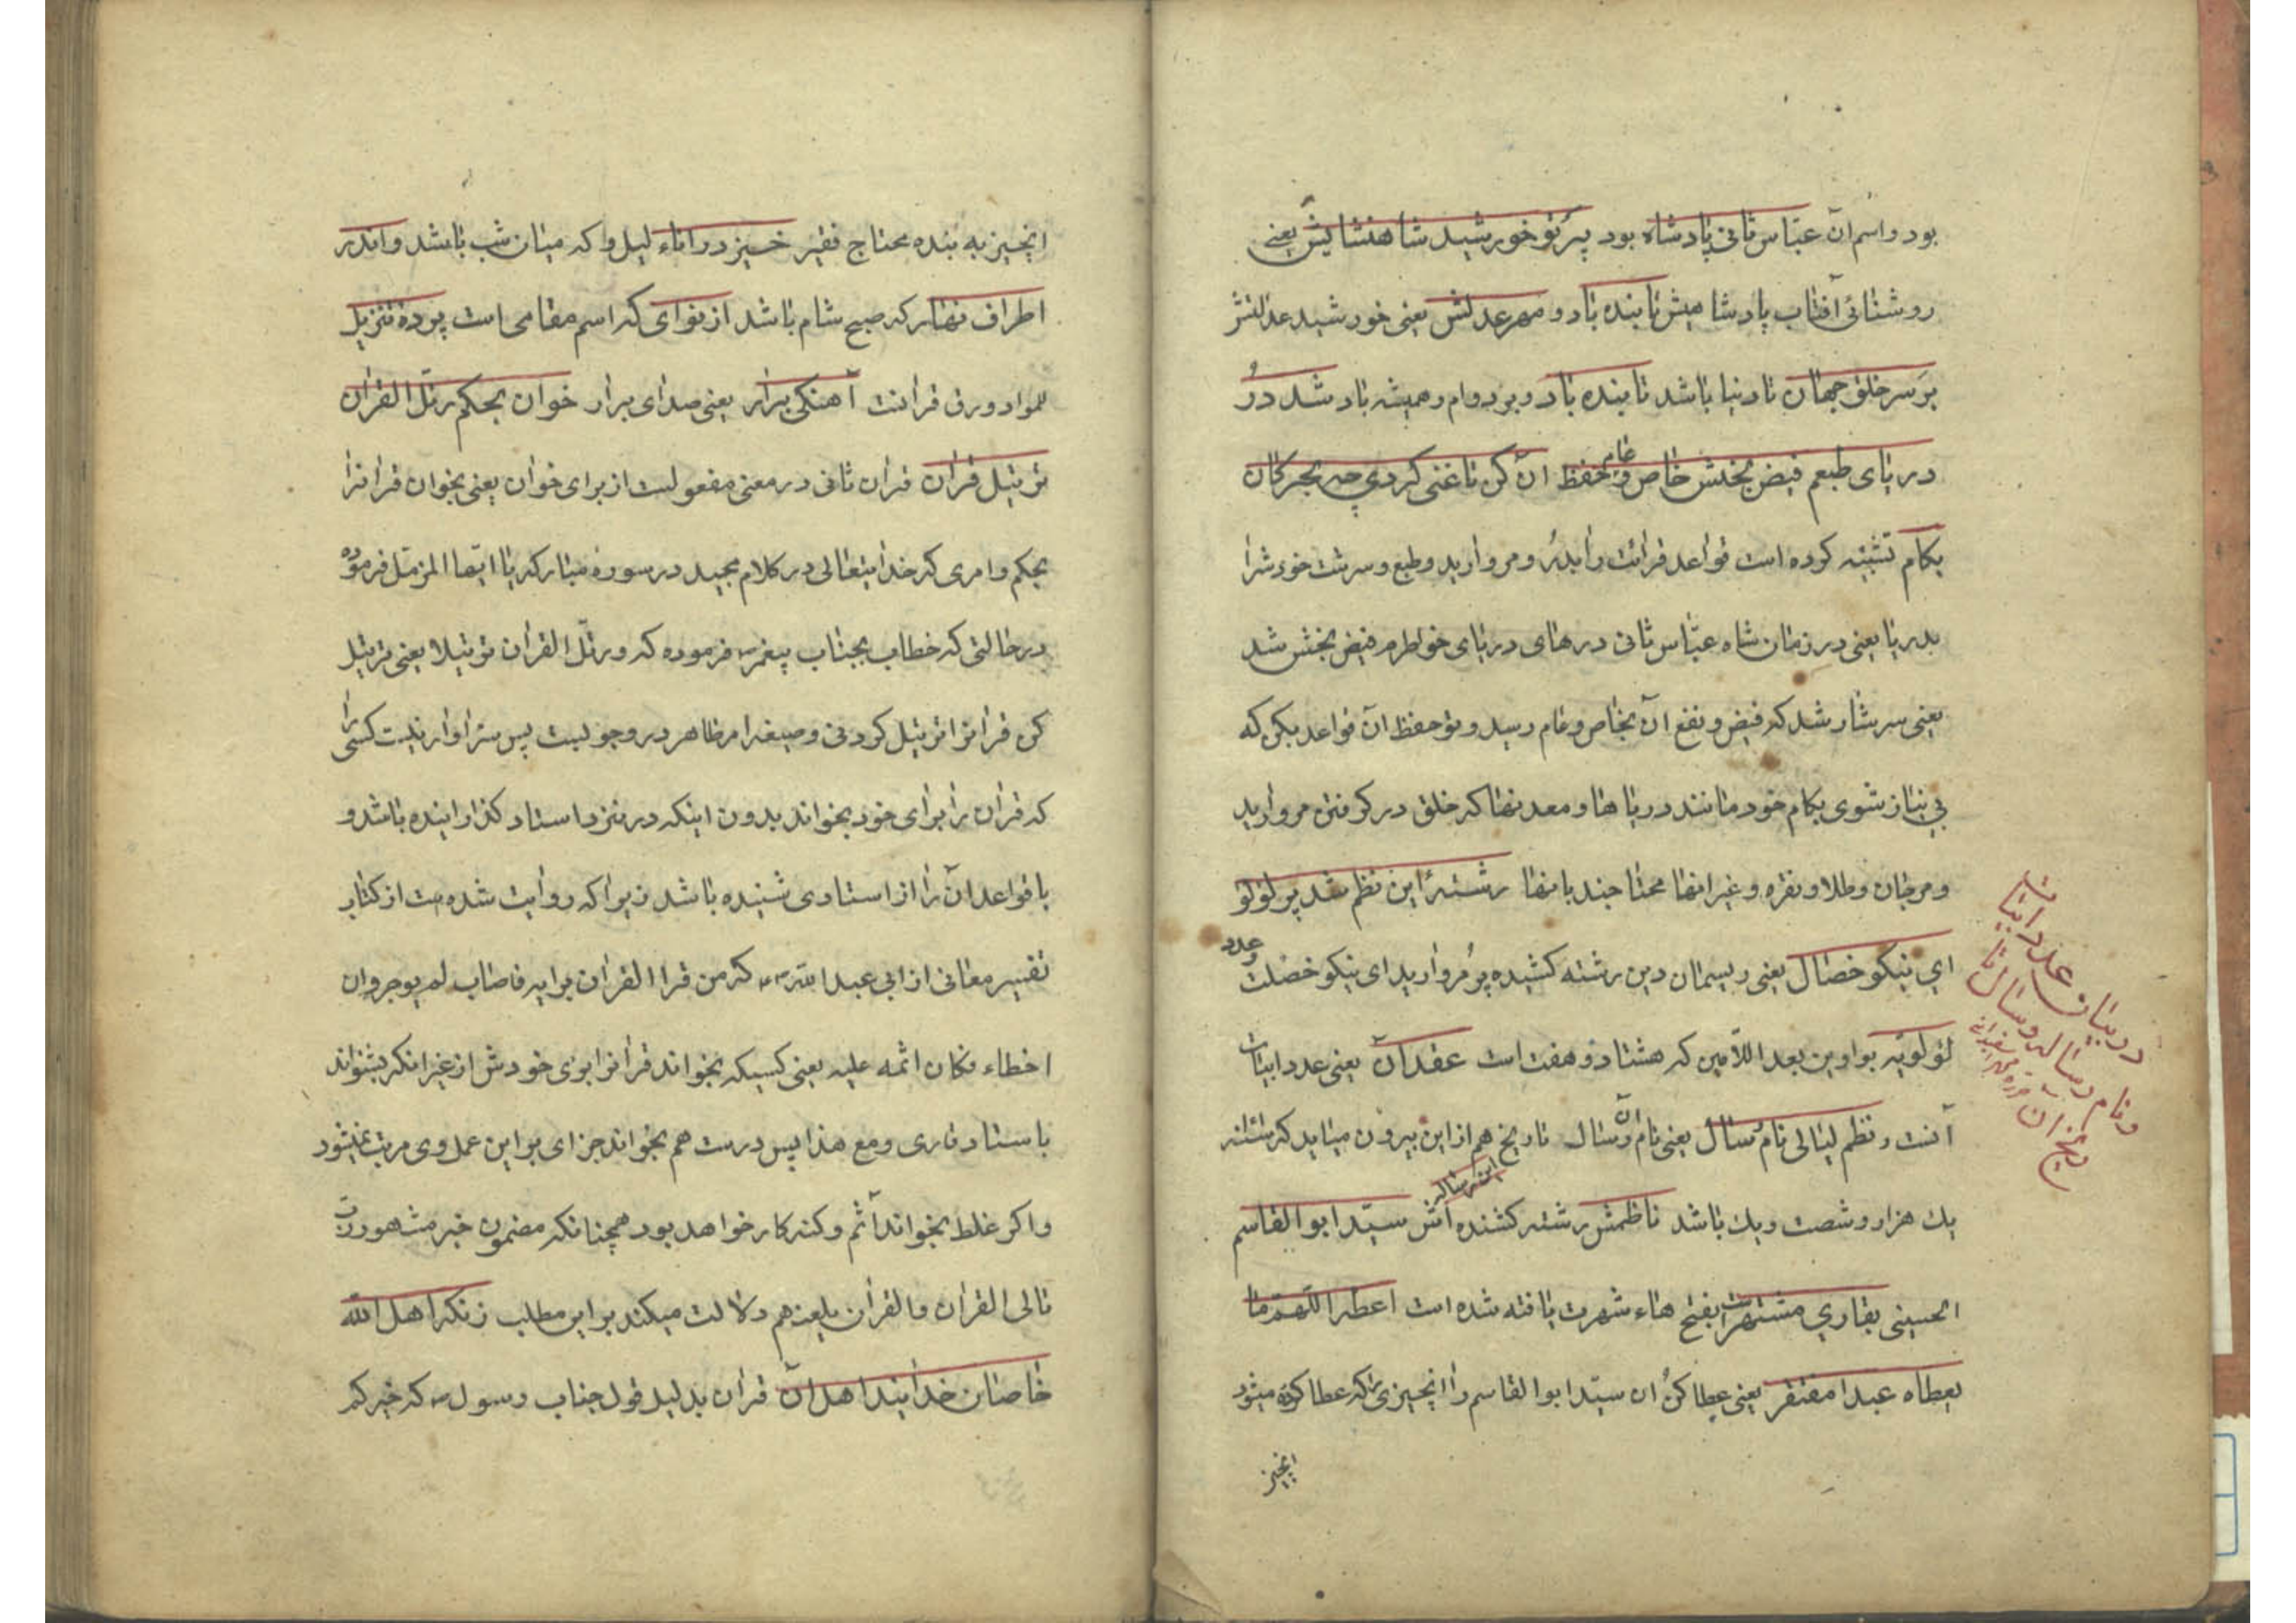 بود و اسم آن عبّاس ثانی پادشاه بود پرتو خورشید شاهنشاهیش یعنی
روشنائی آفتاب پادشاهیش تابنده باد و مهر عدلش یعنی خورشید عدالتش
بر سر خلق جهان تا دنیا باشد تابنده باد و بر دوام و همیشه باد شد دُر
دریای طبعم فیض بخش خاص و عام حفظ آن کن تا غنی کردی چه بحر کان
بکام تشبیه کرده است قواعد قرائت را بدُر و مروارید و طبع و سرشت خودش را
بدریا یعنی در زمان شاه عبّاس ثانی درهای دریای خواطرم فیض بخش شد
یعنی سرشار شد که فیض و نفع آن بخاص و عام رسید و تو حفظ آن قواعد بکن که
بی نیاز شوی بکام خود مانند دریاها و معدنها که خلق در کرفتن مروارید
و مرجان و طلا و نقره و غیر اینها محتاجند بانها رشتهٔ این نظم شد پر لؤلؤ
ای نیکو خصال یعنی ریسمان دین رشته کشیده پر مروارید ای نیکو خصلت و عدد
لؤلؤیه بواوین بعد اللّامین که هشتاد و هفت است عقد آن یعنی عدد ابیات
آنست و نظم لیالی نام سال یعنی نام آن و سال تاریخ هم از این بیرون میاید که سنه
یك هزار و شصت و یك باشد ناظمش رشته کشنده اش این رساله سیّد ابو القاسم
الحسینی بقاری مشتهر است بفتح هاء شهرت یافته شده است اعطه اللّهم ما
یعطاه عبدا مفتقر یعنی عطا کن آن سیّد ابو القاسم را انچیزی که عطا کرده میشود
انچیز
در بیان عدد ابیات
و نام رساله و سال تا
ریخ آن
انچیز به بنده محتاج فقیر خیز در اناء لیل و که میان شب باشد و اندر
اطراف نهار که صبح شام باشد از نوای که اسم مقامی است پردهٔ تنزیل
آهنکی برار یعنی صدای برار خوان بحکم رتّل القرآن
ترتیل قرآن قرآن ثانی در معنی مفعولست از برای خوان یعنی بخوان قرآنرا
بحکم و امری که خدایتعالی در کلام مجید در سورهٔ مبارکه یا ایّها المزمّل فرموده
در حالتی که خطاب بجناب پیغمبر فرموده که و رتّل القرآن ترتیلا یعنی ترتیل
کن قرآنرا ترتیل کردنی و صیغه امر ظاهر در وجوبست پس سزاوار نیست کسی را
که قرآن را برای خود بخواند بدون اینکه در نزد استاد کذرانیده باشد و
یا قواعد آن را از استادی شنیده باشد زیرا که روایت شده است از کتاب
تفسیر معانی از ابی عبد الله که من قرا القرآن برایه فاصاب لم یوجر و ان
اخطاء فکان اثمه علیه یعنی کسیکه بخواند قرآنرا برای خودش از غیر انکه بشنواند
باستاد قاری و مع هذا پس درست هم بخواند جزای بر این عمل وی مرتب نمیشود
و اکر غلط بخواند آثم و کنه کار خواهد بود همچنانکه مضمون خبر مشهور ربّ
تالی القرآن و القرآن یلعنه هم دلالت میکند بر این مطلب زنکه اهل الله
خاصان خدایند اهل آن قرآن بدلیل قول جناب رسول که خیرکم